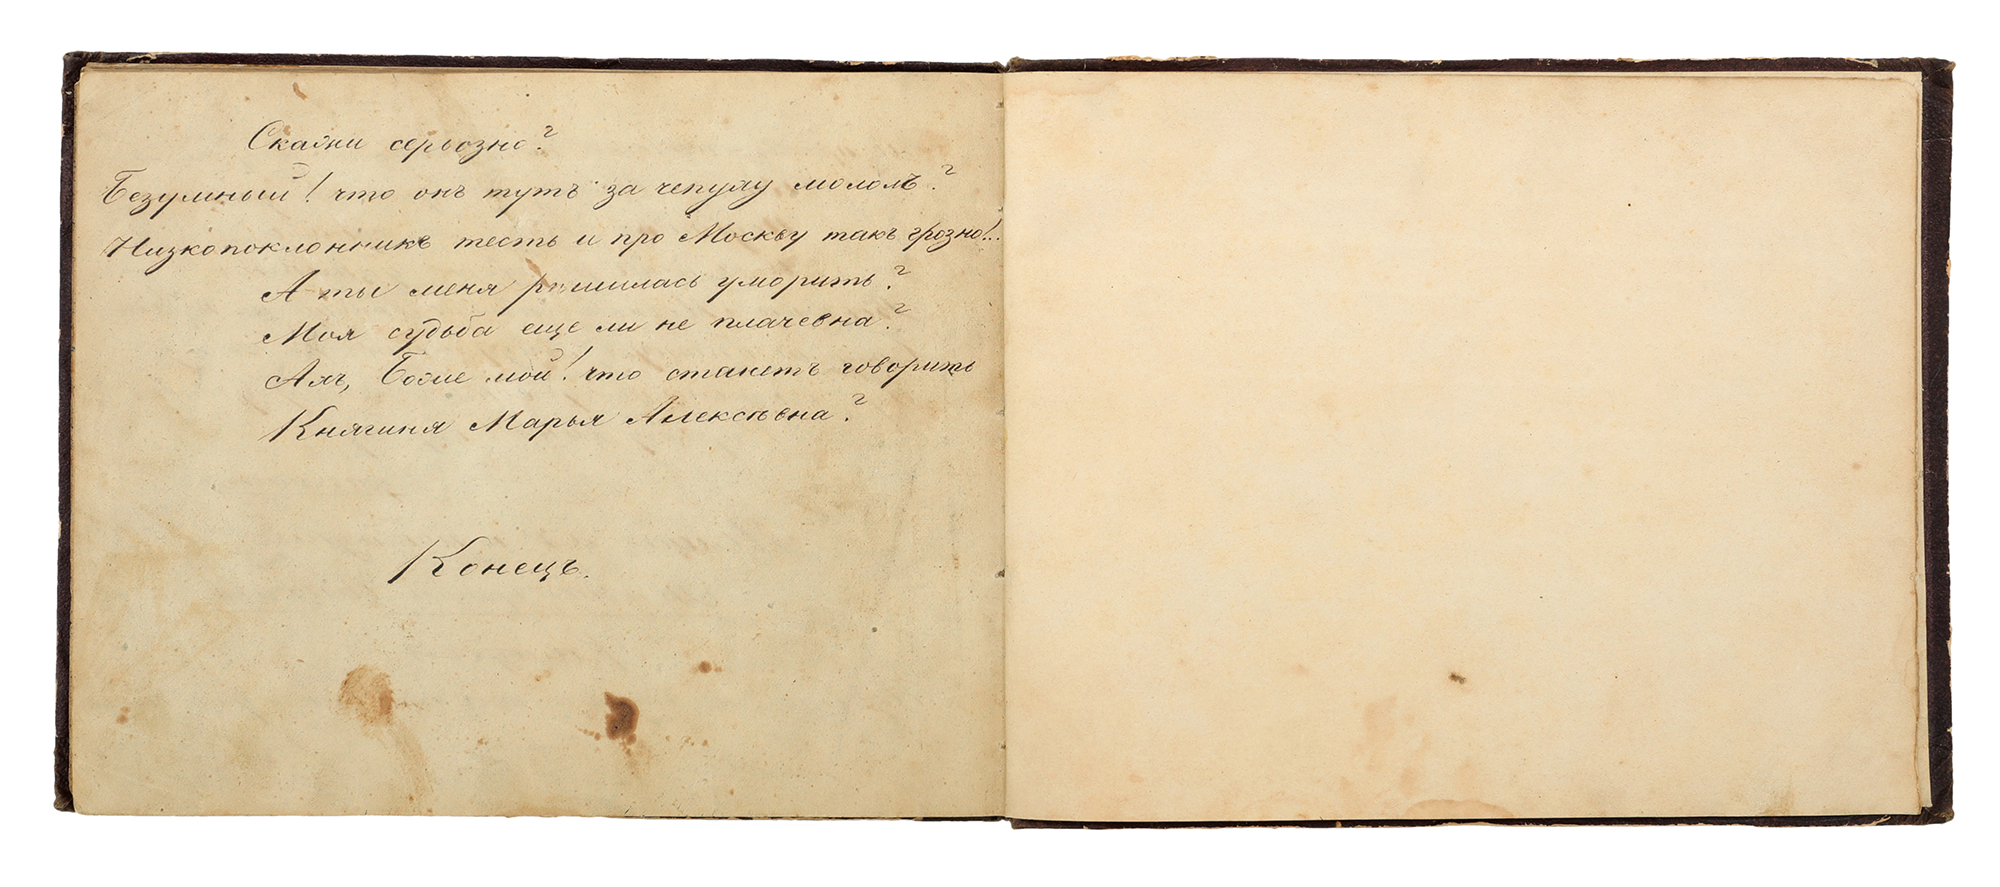 Скажи серьозно?
Безумный! что онъ тутъ за чепуху мололъ?
Низкопоклонникъ тесть и про Москву такъ грозно!..
А ты меня рѣшилась уморить?
Моя судьба еще ли не плачевна?
Ахъ, Боже мой! что станетъ говорить
Княгиня Марья Алексѣвна?
Конецъ.